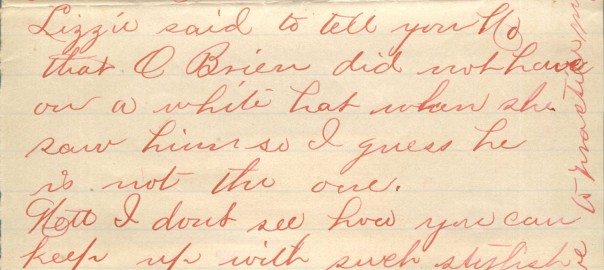 Lizzie said to tell you No
that O Brien did not have
on a white hat when she
saw him so I guess he
is not the one.
I dont see how you can
keep up with such stylish
to practice